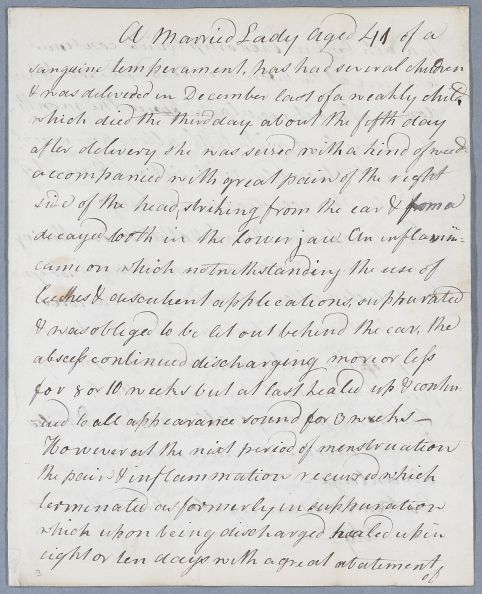 A Married Lady aged 41 of a
sanguine temperament, has had several children
& was delivered in December last of a weakly child,
which died the third day about the fifth day
after delivery she was seized with a kind of weed
accompanied with great pain of the right
side of the head, striking from the ear & from a
decayed tooth in the lower jaw. An inflamn.
came on which notwithstanding the use of
leeches & discutient applications, suppurated
& was obliged to be let out behind the ear, the
abscess continued discharging more or less
for 8 or 10 weeks but at last healed up & contin-
ued to all appearance sound for 3 weeks —
However at the next period of menstruation
the pain & inflammation recurred which
terminated as formerly in suppuration
which upon being discharged healed up in
eight or ten days with a great abatement
of